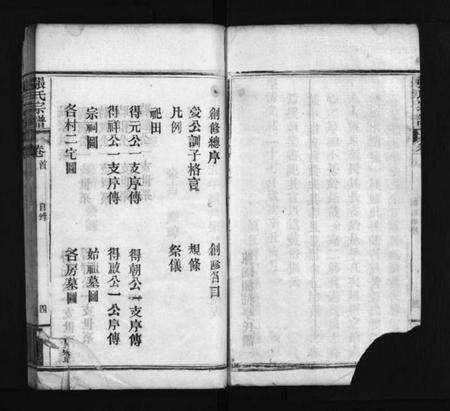 創修總序
愛公訓子格言
凡例
祀田
得元公一支序傳
得祥公一支序傳
宗祠圖
各村二宅圖
創修名目
規條
祭儀
得朝公一支序傳
得啟公一公序傳
始祖墓圖
各房墓圖
張氏宗譜
卷首
目錄
四